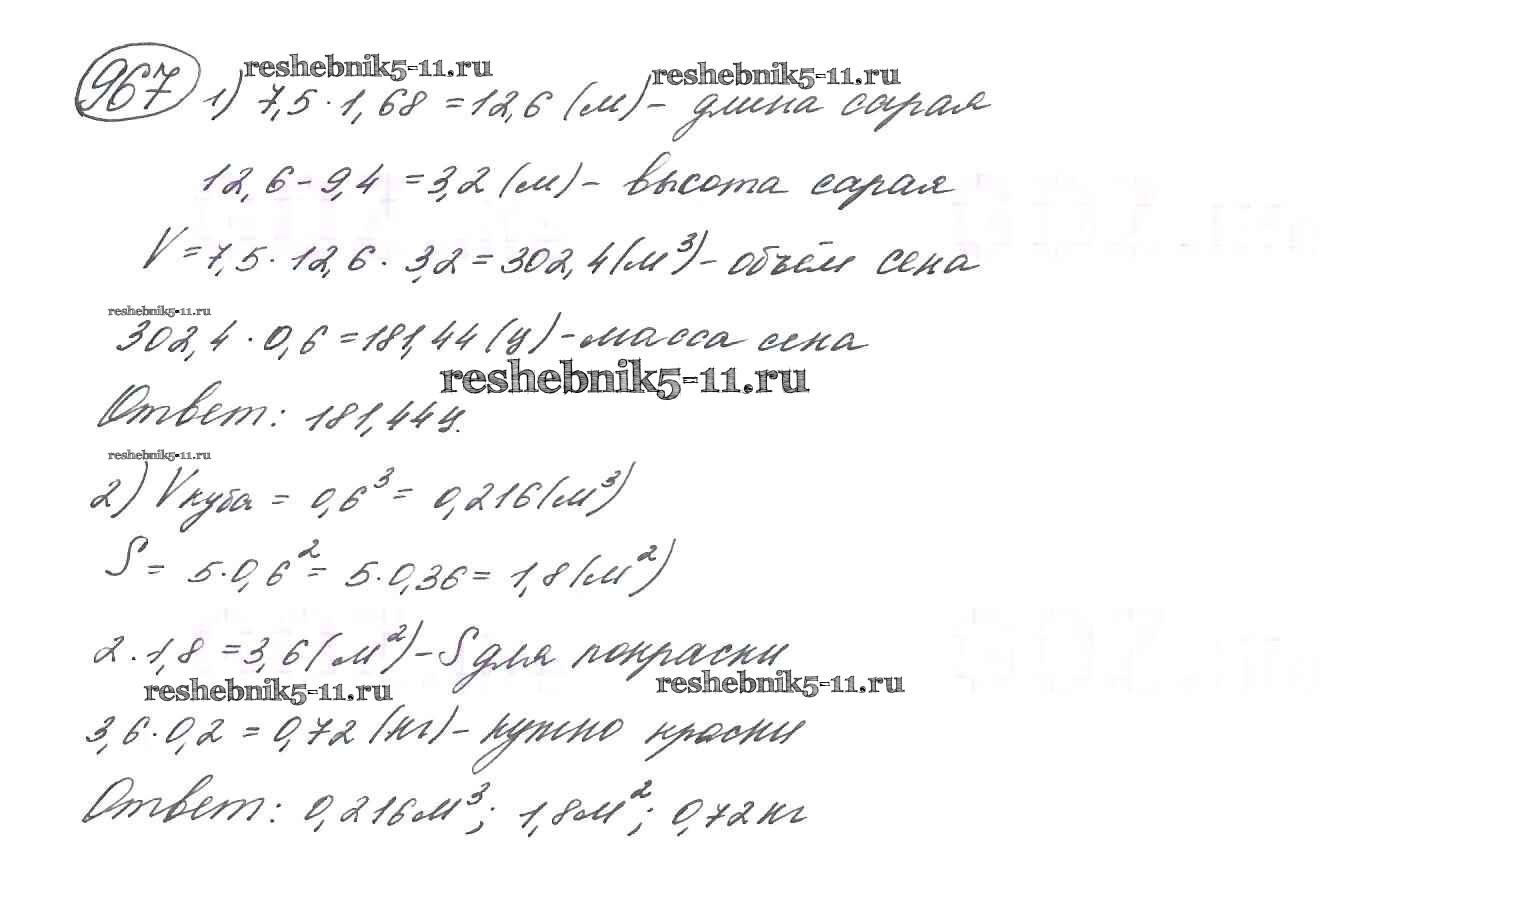 967 1) 7,5 · 1,68 = 12,6 (м) - длина сарая
reshebnik5-11.ru reshebnik5-11.ru
12,6 - 9,4 = 3,2 (м) - высота сарая
V = 7,5 · 12,6 · 3,2 = 302,4 (м³) - объём сена
reshebnik5-11.ru
302,4 · 0,6 = 181,44 (ц) - масса сена
reshebnik5-11.ru
Ответ: 181,44 ц.
reshebnik5-11.ru
2) Vкуба = 0,6³ = 0,216 (м³)
S = 5 · 0,6² = 5 · 0,36 = 1,8 (м²)
2 · 1,8 = 3,6 (м²) - S для покраски
reshebnik5-11.ru reshebnik5-11.ru
3,6 · 0,2 = 0,72 (кг) - нужно краски
Ответ: 0,216 м³; 1,8 м²; 0,72 кг